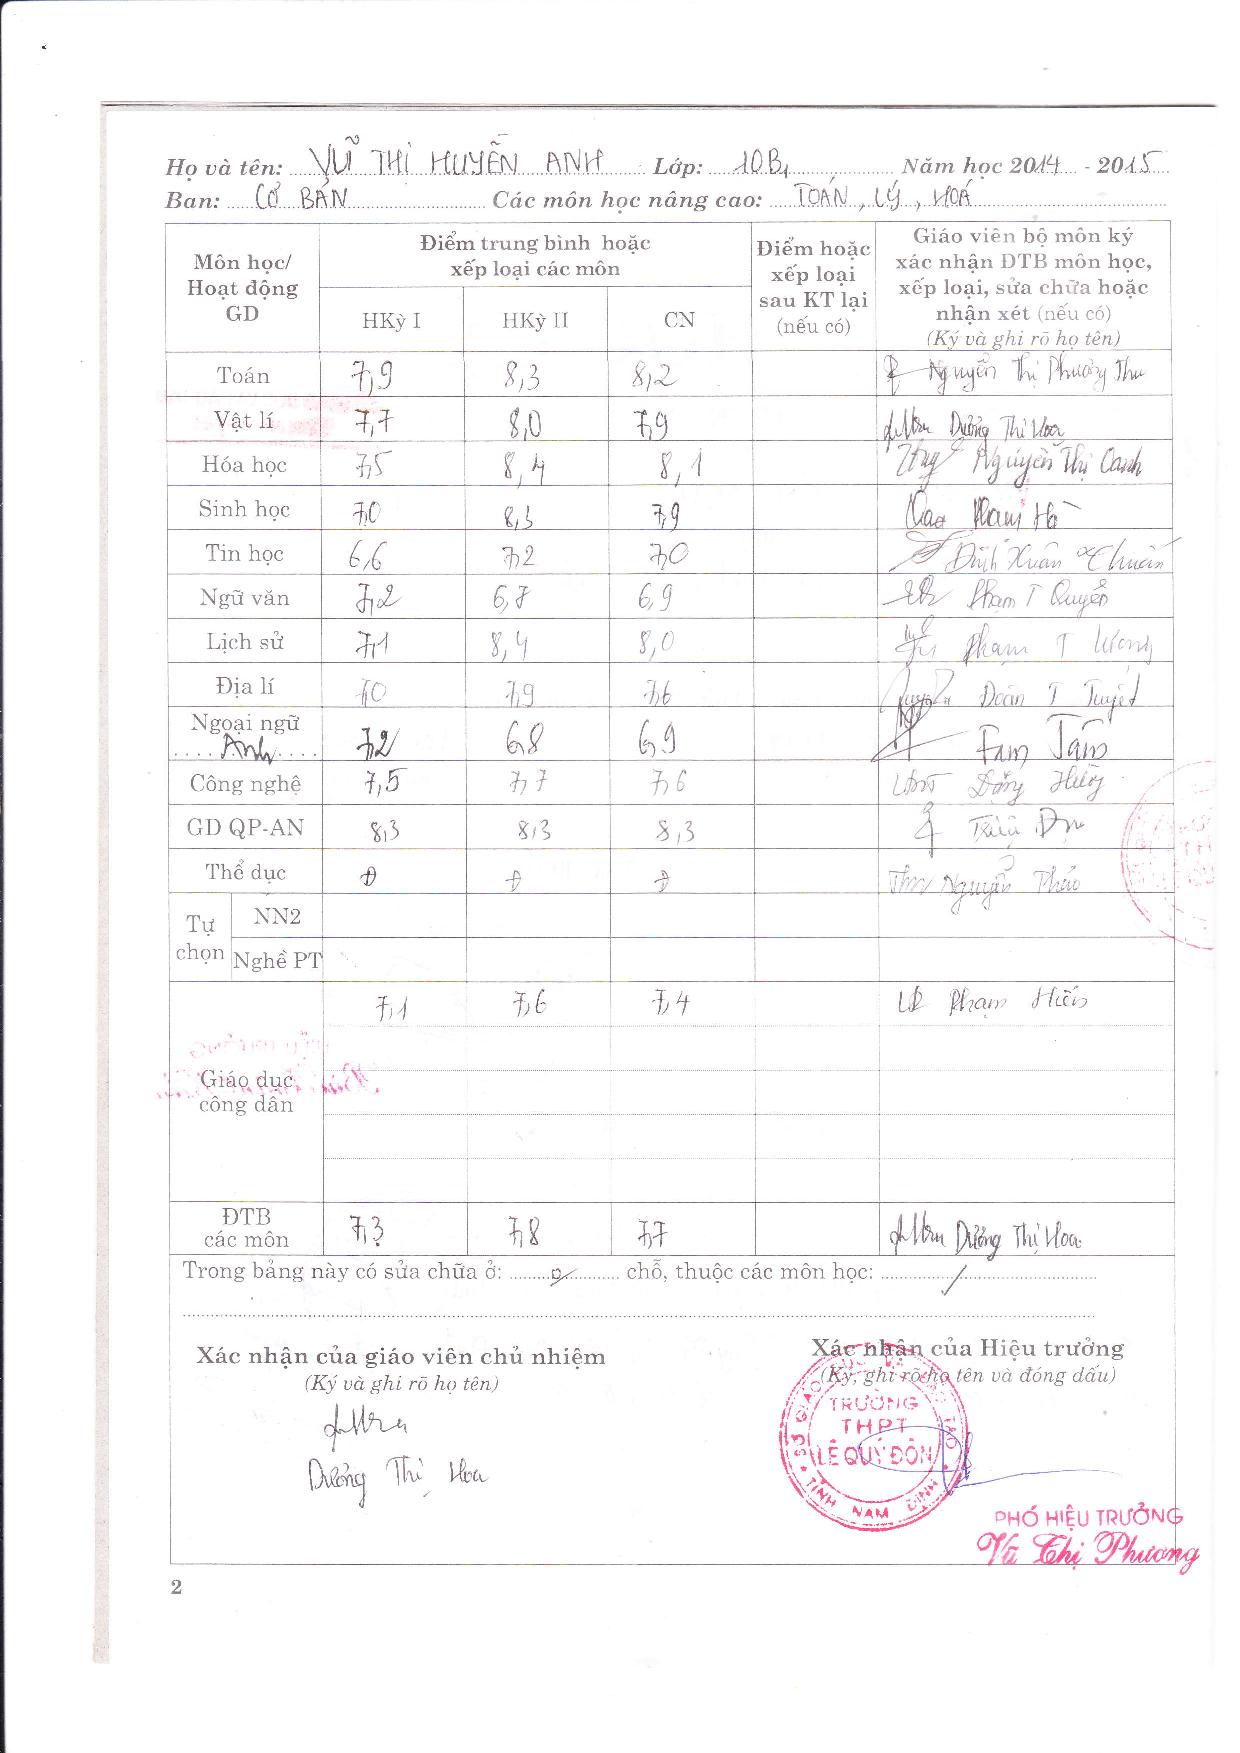 Họ và tên: VŨ THỊ HUYỀN ANH Lớp: 10B1 Năm học 2014 - 2015
Ban: CƠ BẢN Các môn học nâng cao: TOÁN, LÝ, HOÁ
Môn học/ Hoạt động GD
Điểm trung bình hoặc xếp loại các môn
HKỳ I HKỳ II CN
Điểm hoặc xếp loại sau KT lại (nếu có)
Giáo viên bộ môn ký xác nhận ĐTB môn học, xếp loại, sửa chữa hoặc nhận xét (nếu có)
(Ký và ghi rõ họ tên)
Toán 7,9 8,3 8,2 Nguyễn Thị Phương Thu
Vật lí 7,7 8,0 7,9 Dương Thị Hoa
Hóa học 7,5 8,4 8,1 Nguyễn Thị Oanh
Sinh học 7,0 8,3 7,9
Tin học 6,6 7,2 7,0 Đinh Xuân Thuấn
Ngữ văn 7,2 6,7 6,9 Phạm T Quyên
Lịch sử 7,1 8,4 8,0 Phạm T
Địa lí 7,0 7,9 7,6 Đoàn T Tuyết
Ngoại ngữ
Anh 7,2 6,8 6,9 Tâm
Công nghệ 7,5 7,7 7,6 Đặng
GD QP-AN 8,3 8,3 8,3
Thể dục Đ Đ Đ Nguyễn Thảo
Tự chọn NN2
Nghề PT
Giáo dục công dân 7,1 7,6 7,4 Phạm Hiến
ĐTB các môn 7,3 7,8 7,7 Dương Thị Hoa
Trong bảng này có sửa chữa ở: 0 chỗ, thuộc các môn học: /
Xác nhận của giáo viên chủ nhiệm
(Ký và ghi rõ họ tên)
Dương Thị Hoa
Xác nhận của Hiệu trưởng
(Ký, ghi rõ họ tên và đóng dấu)
SỞ GIÁO DỤC VÀ ĐÀO TẠO
TRƯỜNG
THPT
LÊ QUÝ ĐÔN
TỈNH NAM ĐỊNH
PHÓ HIỆU TRƯỞNG
Vũ Thị Phương
2